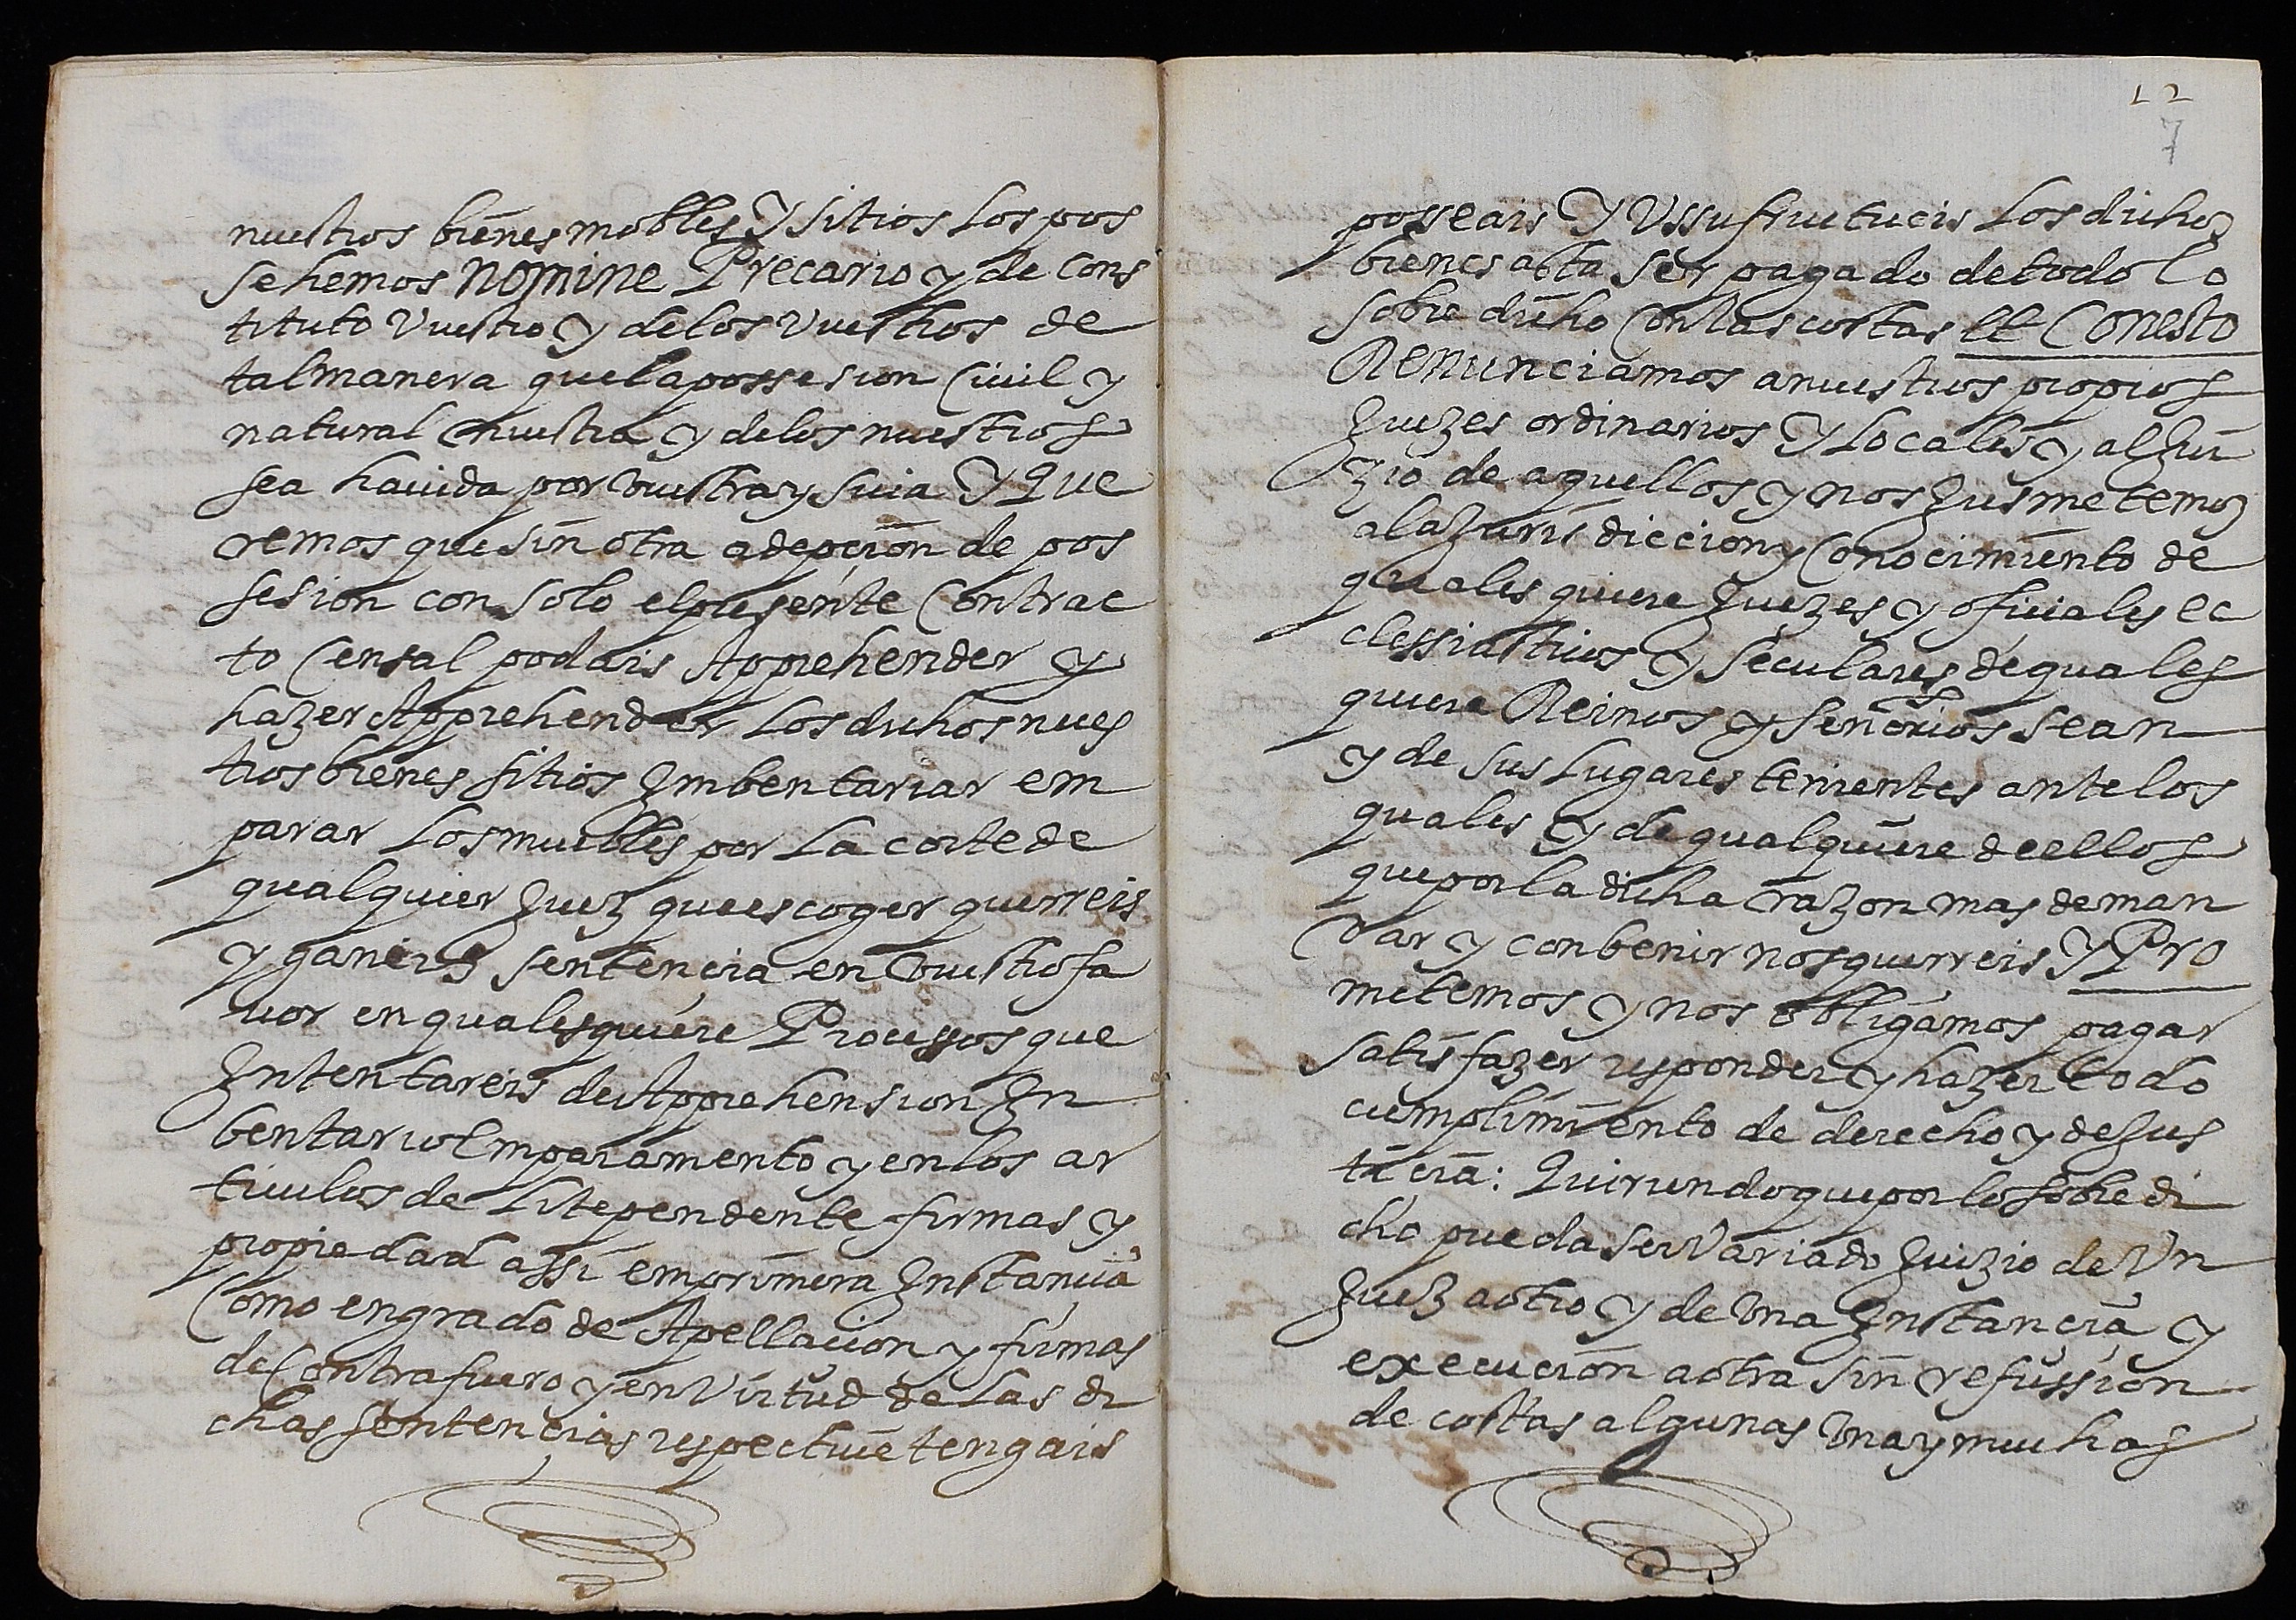 nuestros bienes mobles y sitios los pos
sehemos nomine Precario y de cons
tituto vuestro y de los vuestros de
tal manera que la possesion civil y
natural nuestra y de los nuestros
sea havida por vuestra y suia y que
remos que sin otra adepcion de pos
sesion con solo el presente contrac
to censal podais Apprehender y
hazer Apprehender los dichos nues
tros bienes sitios Imbentariar em
parar los muebles por la corte de
qualquier Juez que escoger querreis
y ganeis sentencia en vuestro fa
vor en qualesquiere Processos que
Intentareis de Apprehension In
bentario Emparamento y en los ar
ticulos de Litependente firmas y
propiedad assi em primera Instancia
como en grado de Apellacion y firmas
de Contrafuero y en virtud de las di
chas sentencias respective tengais
12
7
posseais y Ussufructueis los dichos
bienes asta ser pagado de todo lo
sobre dicho con las costas et Con esto
Renunciamos a nuestros propios
Juezes ordinarios y locales y al Jui
zio de aquellos y nos Jusmetemos
a la Jurisdiccion y Conocimiento de
qualesquiere Juezes y oficiales ec
clessiasticos y seculares de quales
quiere Reinos y señorios sean
y de sus lugares tenientes ante los
quales y de qualquiere de ellos
que por la dicha razon mas deman
dar y conbenir nos querreis y Pro
metemos y nos obligamos pagar
satisfazer responder y hazer todo
cumplimiento de derecho y de Jus
ticia: Quiriendo que por lo sobre di
cho pueda ser variado Juizio de Un
Juez a otro y de una Instancia y
execucion a otra sin refussion
de costas algunas una y muchas